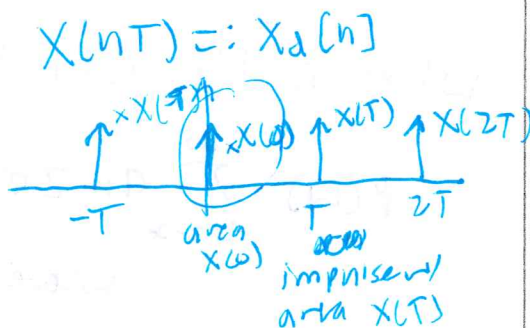 X(nT) =: Xd[n]
xX(-T) xX(0) X(T) X(2T)
-T T 2T
area
X(0)
impulse w/
area X(T)